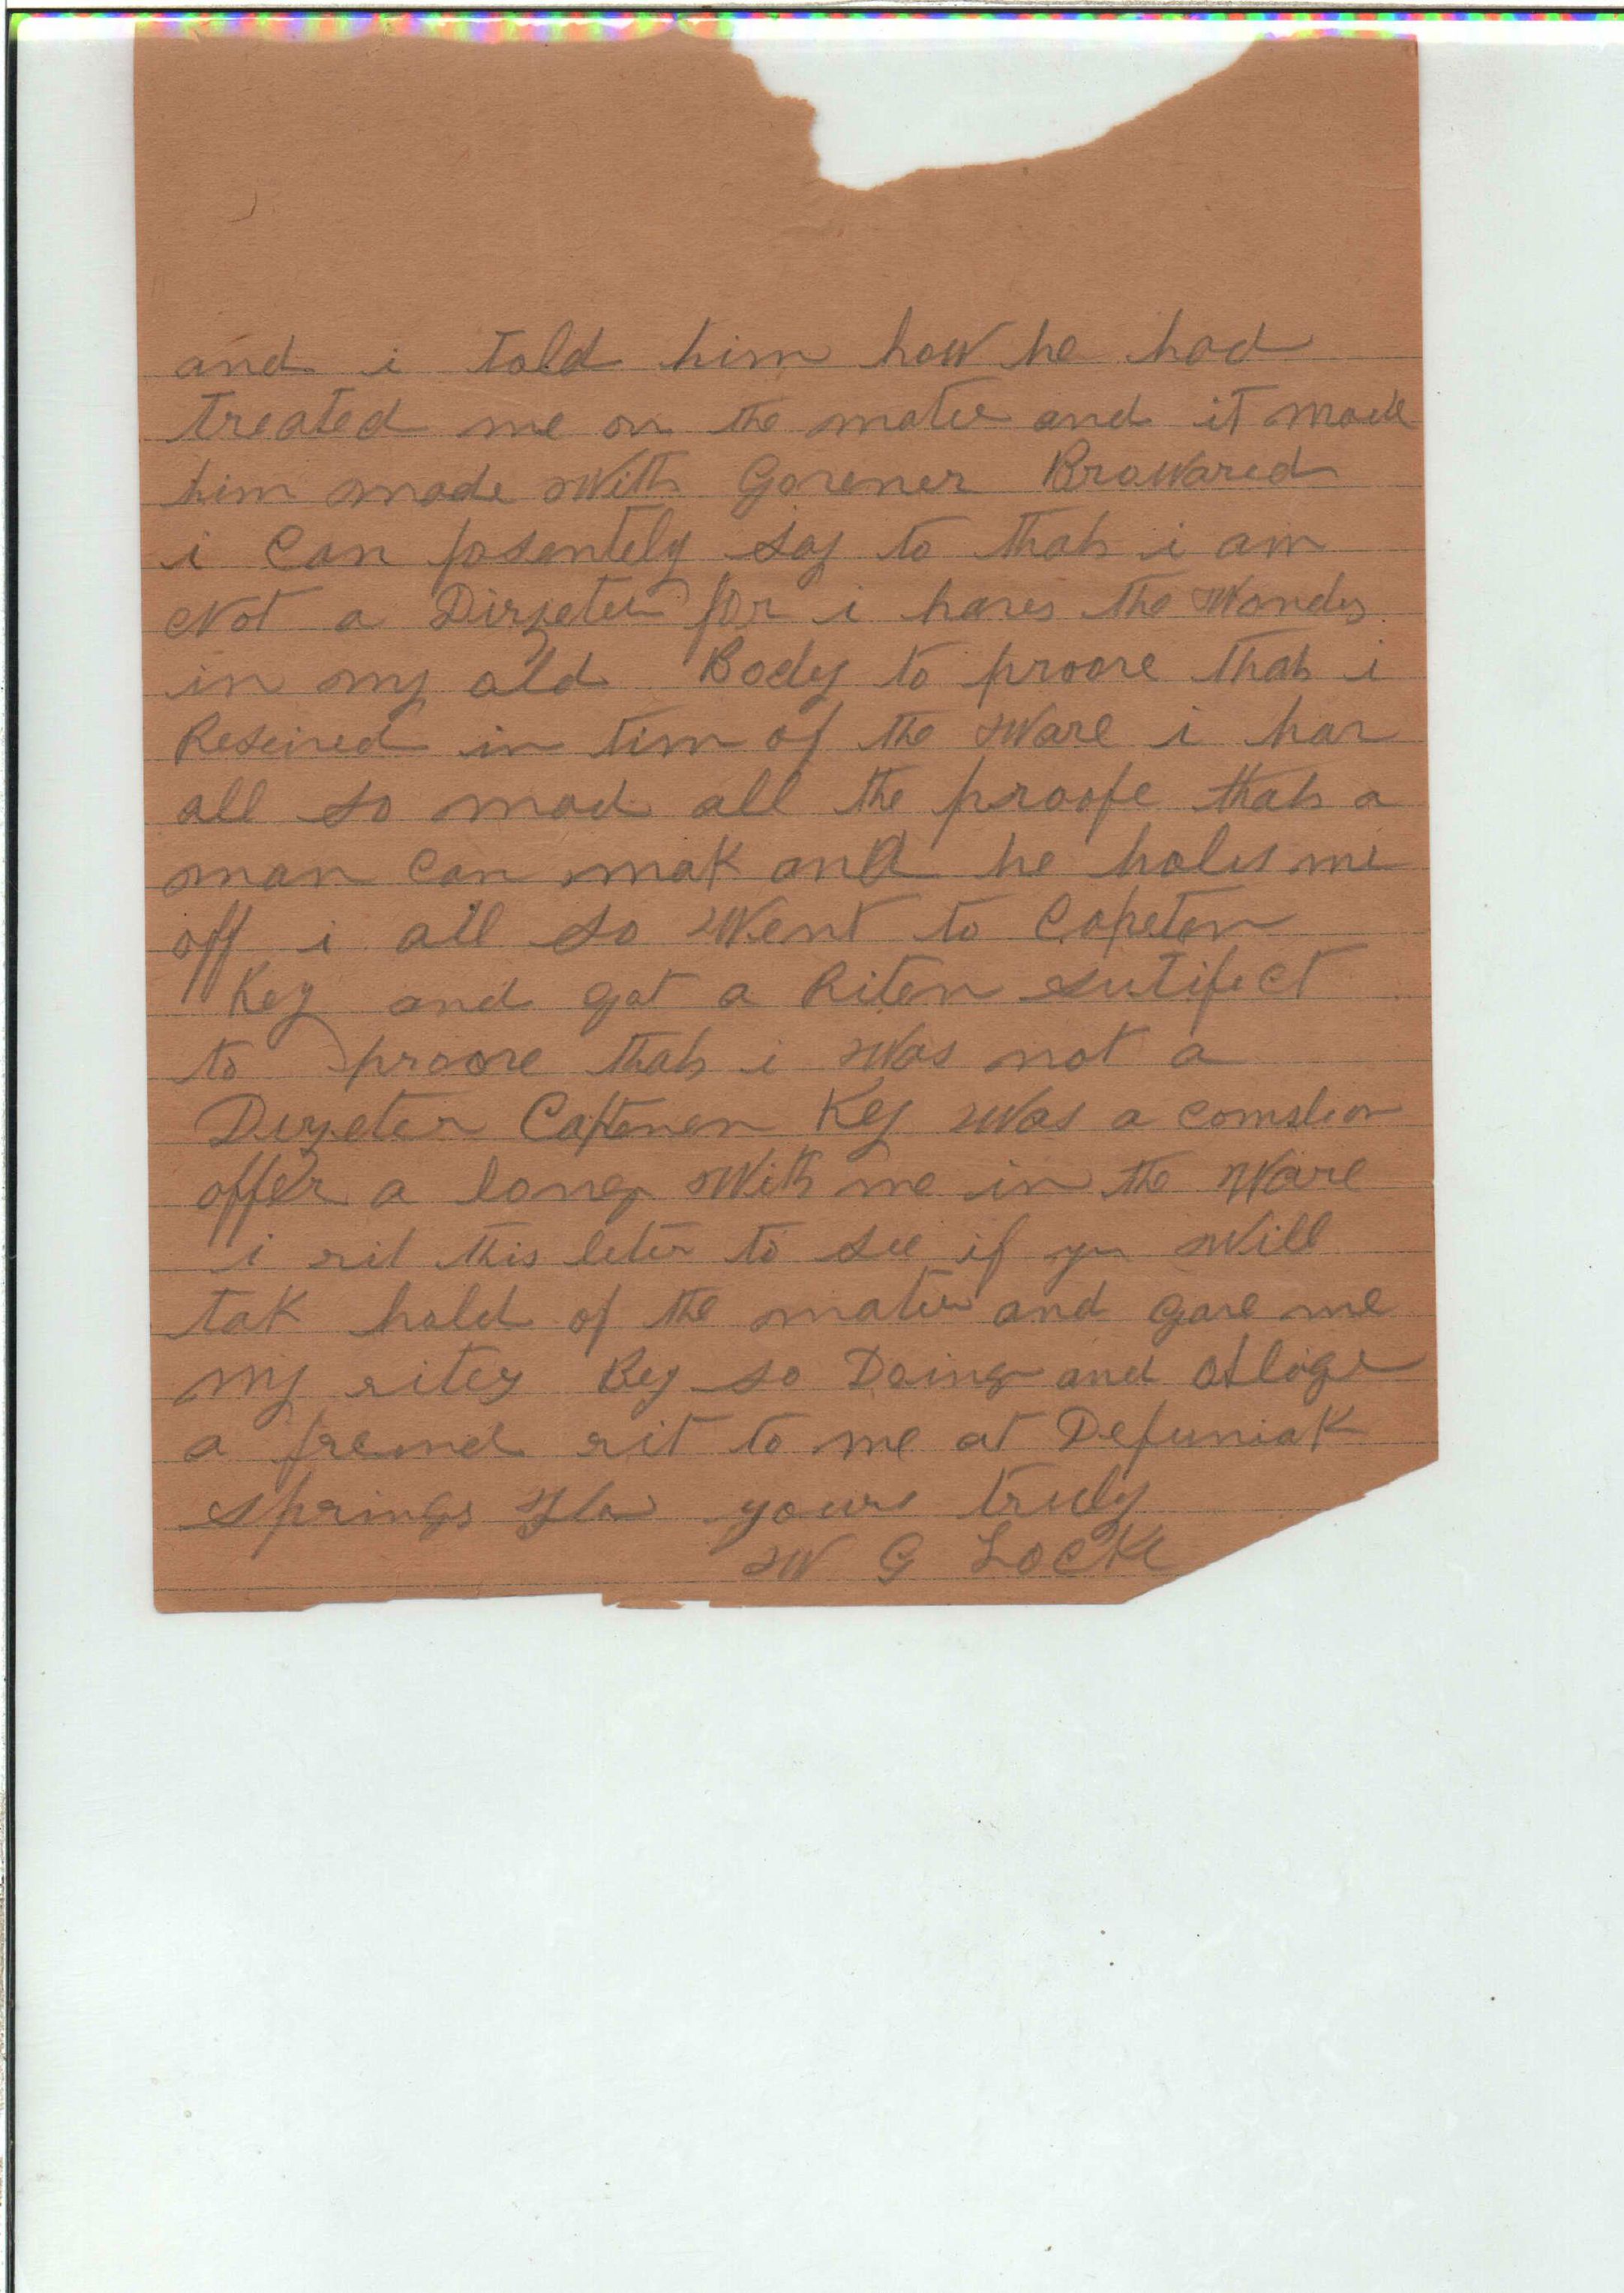 and i told him how he had
treated me on the mater and it made
him made with Govener Browared
i Can posentely say to that i am
Not a Dirzeter for i haves the Wondes
in my old Body to proove that i
Reseived in tim of the Ware i hav
all so mad all the proofe that a
man Can mak and he holes me
off i all so Went to Capeten
Key and got a Riten sutifect
to proove that i Was not a
Dirzeter Captenen Key Was a comsleon
offer a long With me in the Ware
i rit this leter to see if yu Will
tak hold of the mater and gave me
my rites By so Doing and Oblige
a frend rit to me at Defuniak
springs Fla yours truly
W G Locke